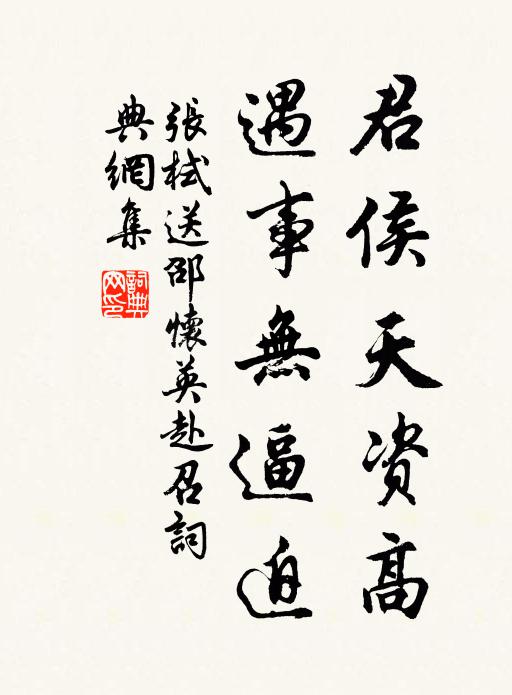 君侯天资高
遇事無逼迫
張栻送邵懷英赴召詞
典網集
詞典網印